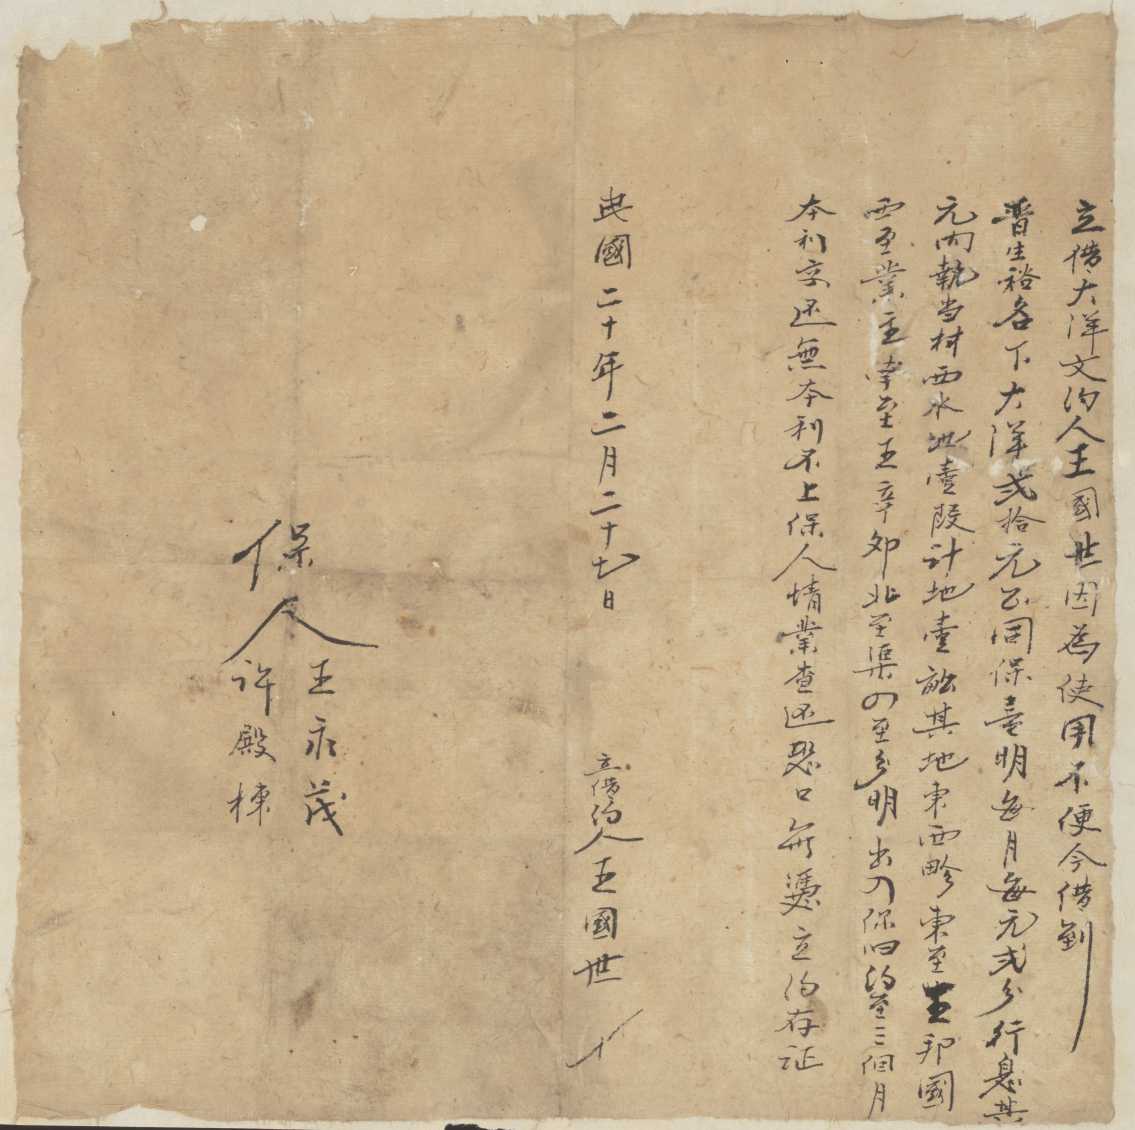 立借大洋文約人王國世因為使用不便今借到
晋生裕名下大洋弍拾元公同保言明每月每元弍分行息其
元內執当村西水地壹段計地壹畝其地東西畛東至王邦國
西至業主南至王辛卯北至渠四至分明出入依旧約至三個月
本利交还無本利不上保人情業查还恐口無憑立約存証
民國二十年二月二十七日
立借約人王國世
保人
王永茂
許殿棟